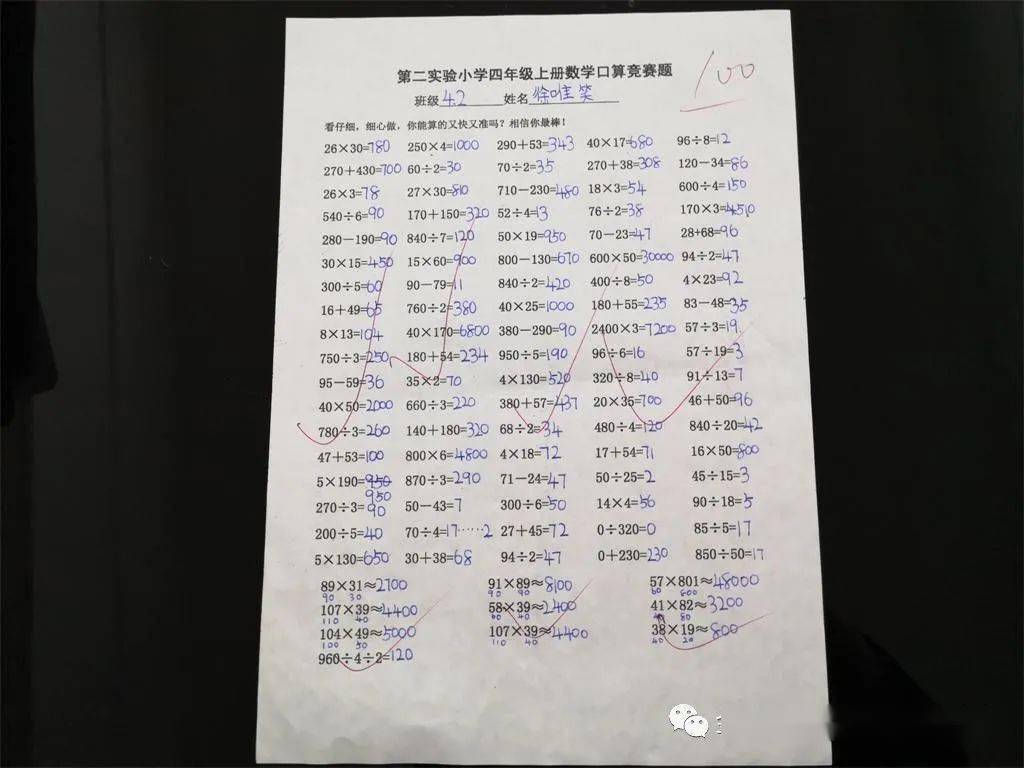 第二实验小学四年级上册数学口算竞赛题
100
班级 4.2 姓名 徐唯笑
看仔细，细心做，你能算的又快又准吗？相信你最棒！
26×30=780 250×4=1000 290+53=343 40×17=680 96÷8=12
270+430=700 60÷2=30 70÷2=35 270+38=308 120-34=86
26×3=78 27×30=810 710-230=480 18×3=54 600÷4=150
540÷6=90 170+150=320 52÷4=13 76÷2=38 170×3=510
280-190=90 840÷7=120 50×19=950 70-23=47 28+68=96
30×15=450 15×60=900 800-130=670 600×50=30000 94÷2=47
300÷5=60 90-79=11 840÷2=420 400÷8=50 4×23=92
16+49=65 760÷2=380 40×25=1000 180+55=235 83-48=35
8×13=104 40×170=6800 380-290=90 2400×3=7200 57÷3=19
750÷3=250 180+54=234 950÷5=190 96÷6=16 57÷19=3
95-59=36 35×2=70 4×130=520 320÷8=40 91÷13=7
40×50=2000 660÷3=220 380+57=437 20×35=700 46+50=96
780÷3=260 140+180=320 68÷2=34 480÷4=120 840÷20=42
47+53=100 800×6=4800 4×18=72 17+54=71 16×50=800
5×190=950 870÷3=290 71-24=47 50÷25=2 45÷15=3
950
270÷3=90 50-43=7 300÷6=50 14×4=56 90÷18=5
200÷5=40 70÷4=17……2 27+45=72 0÷320=0 85÷5=17
5×130=650 30+38=68 94÷2=47 0+230=230 850÷50=17
89×31≈2700 91×89≈8100 57×801≈48000
90 30 90 90 60 800
107×39≈4400 58×39≈2400 41×82≈3200
110 40 60 40 40 80
104×49≈5000 107×39≈4400 38×19≈800
100 50 110 40 40 20
960÷4÷2=120